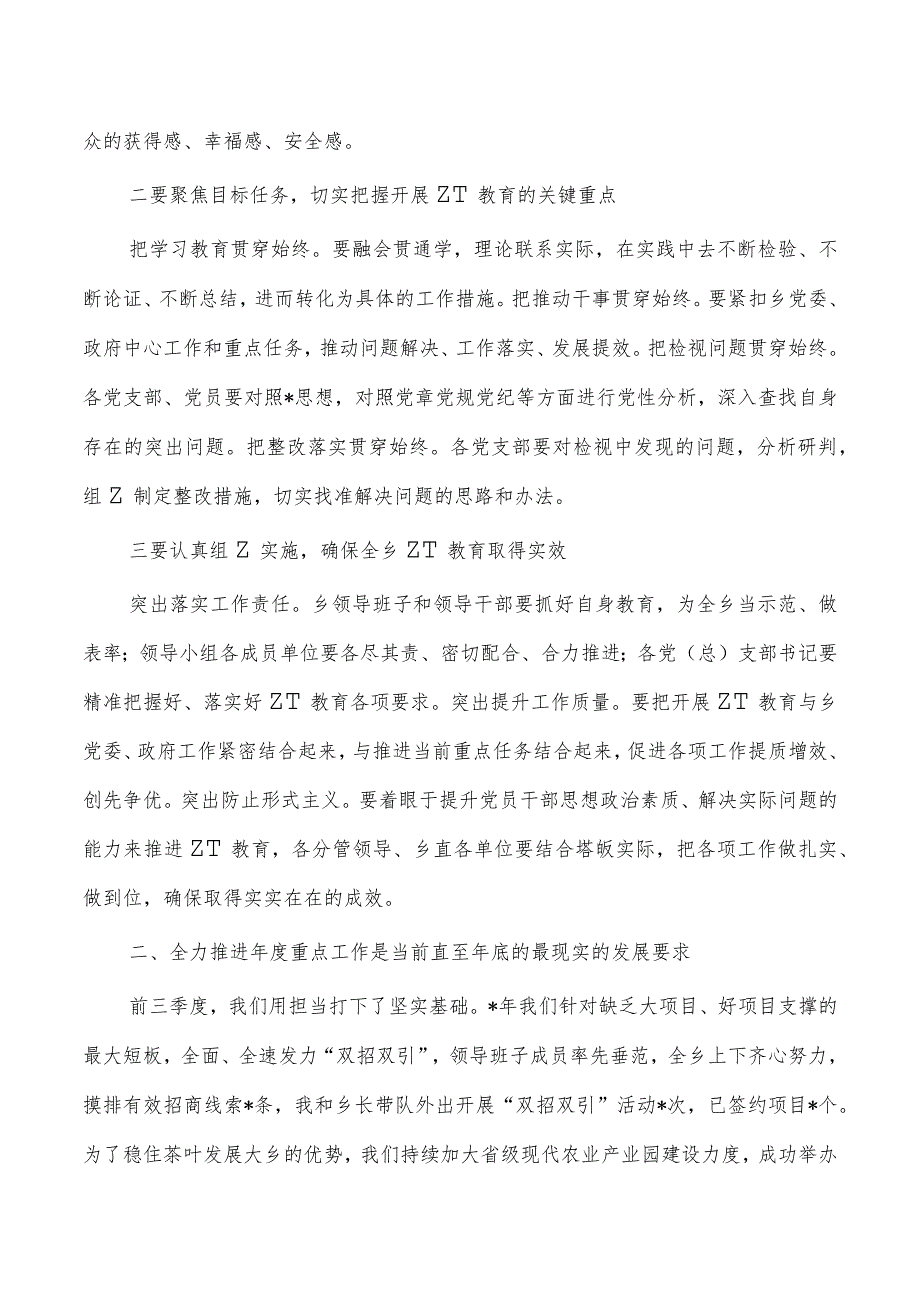 众的获得感、幸福感、安全感。
二要聚焦目标任务，切实把握开展 ZT 教育的关键重点
把学习教育贯穿始终。要融会贯通学，理论联系实际，在实践中去不断检验、不
断论证、不断总结，进而转化为具体的工作措施。把推动干事贯穿始终。要紧扣乡党委、
政府中心工作和重点任务，推动问题解决、工作落实、发展提效。把检视问题贯穿始终。
各党支部、党员要对照*思想，对照党章党规党纪等方面进行党性分析，深入查找自身
存在的突出问题。把整改落实贯穿始终。各党支部要对检视中发现的问题，分析研判，
组 Z 制定整改措施，切实找准解决问题的思路和办法。
三要认真组 Z 实施，确保全乡 ZT 教育取得实效
突出落实工作责任。乡领导班子和领导干部要抓好自身教育，为全乡当示范、做
表率；领导小组各成员单位要各尽其责、密切配合、合力推进；各党（总）支部书记要
精准把握好、落实好 ZT 教育各项要求。突出提升工作质量。要把开展 ZT 教育与乡
党委、政府工作紧密结合起来，与推进当前重点任务结合起来，促进各项工作提质增效、
创先争优。突出防止形式主义。要着眼于提升党员干部思想政治素质、解决实际问题的
能力来推进 ZT 教育，各分管领导、乡直各单位要结合塔畈实际，把各项工作做扎实、
做到位，确保取得实实在在的成效。
二、全力推进年度重点工作是当前直至年底的最现实的发展要求
前三季度，我们用担当打下了坚实基础。*年我们针对缺乏大项目、好项目支撑的
最大短板，全面、全速发力“双招双引”，领导班子成员率先垂范，全乡上下齐心努力，
摸排有效招商线索*条，我和乡长带队外出开展“双招双引”活动*次，已签约项目*个。
为了稳住茶叶发展大乡的优势，我们持续加大省级现代农业产业园建设力度，成功举办